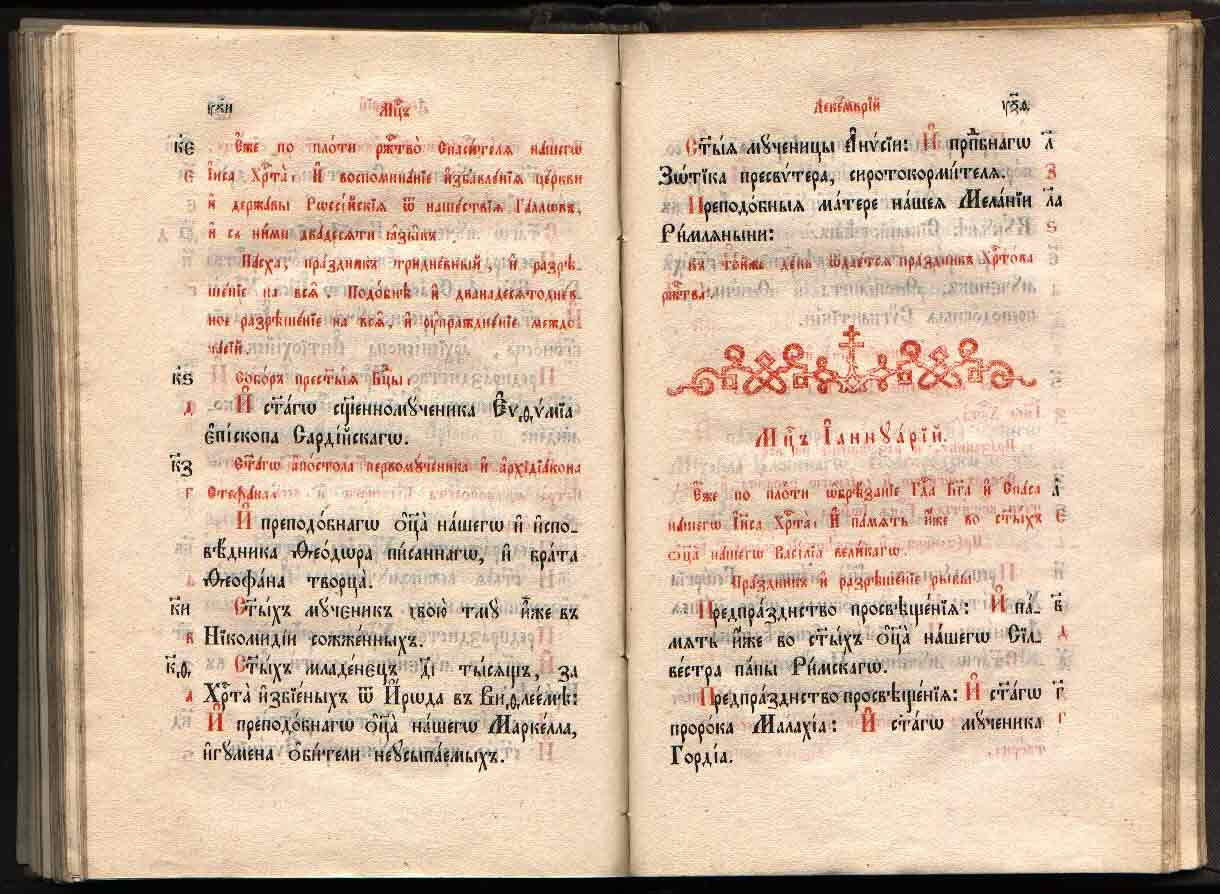 рк҃и Мц҃ъ
к҃е Є҆́же по плоти ржⷭ҇тво̀ Спаси́телѧ на́шегѡ
є І҆и҃са Хрⷭ҇та̀: И҆ воспомина́нїе и҆збавле́нїѧ це́ркви
и҆ держа́вы Рѡссі́йскїѧ ѿ наше́ствїѧ Га́ллѡвъ,
и҆ съ ни́ми два́десѧти ꙗ҆зы̑къ.
Па́сха, пра́здникъ тридне́вный, и҆ разрѣ-
ше́нїе на всѧ̑. Подо́бнѣ и҆ двана́десѧтодне́в
ное разрѣше́нїе на всѧ̑, и҆ ᲂу҆пражне́нїе междо
часїй.
к҃ѕ Собо́ръ прест҃ы́ѧ Бц҃ы.
д И҆ ст҃а́гѡ сщ҃енномꙋ́ченика Є҆ѵѳѵ́мїа
є҆пі́скопа Сардїйскагѡ.
к҃з Ст҃а́гѡ а҆по́стола первомꙋ́ченика и҆ а҆рхїдїа́кона
г Стефа́на.
И҆ преподо́бнагѡ ѻ҆ц҃а̀ на́шегѡ и҆ и҆спо-
вѣ́дника Ѳео́дѡра пи́саннагѡ, и҆ бра́та
Ѳеофа́на творца̀.
к҃и Ст҃ы́хъ мꙋ́ченик двою̀ тмꙋ̀ и҆̀же въ
в Нїкомиді́и сожже́нныхъ.
к҃ѳ Ст҃ы́хъ младе́нєцъ д҃і ты́сѧщъ, за
а Хрⷭ҇та̀ и҆збїе́ныхъ ѿ И҆́рѡда въ Виѳлее́мѣ:
И҆ преподо́бнагѡ ѻ҆ц҃а̀ на́шегѡ Марке́лла,
и҆гꙋ́мена ѻ҆би́тели неꙋсыпа́емыхъ.
Декемврїй рк҃ѳ
Ст҃ы́ѧ мꙋ́ченицы А҆нѵсі́и: И҆ прпⷣбнагѡ л҃
Зѡ́тїка пресвѵ́тера, сиротокорми́телѧ. з
Преподо́бныѧ ма́тере на́шеѧ Мела́нїи л҃а
Ри́млѧныни: ѕ
въ то́йже де́нь ѿдае́тсѧ пра́здникъ Хрⷭ҇то́ва
ржⷭ҇тва̀.
Мц҃ъ І҆аннꙋа́рїй.
Є҆́же по пло́ти ѡ҆брѣ́занїе Гдⷭ҇а Бг҃а и҆ Сп҃са а҃
на́шегѡ І҆и҃са Хрⷭ҇та̀: И҆ па́мѧть и҆́же во ст҃ы́хъ є
ѻ҆ц҃а̀ на́шегѡ Васі́лїа вели́кагѡ.
Пра́здникъ и҆ разрѣше́нїе ры́бы
Предпра́зднство просвѣще́нїѧ: И҆ па́- в҃
мѧть и҆́же во ст҃ы́хъ ѻ҆ц҃а̀ на́шегѡ Сїл- д
ве́стра па́пы Ри́мскагѡ.
Предпра́зднство просвѣще́нїѧ: И҆ ст҃а́гѡ г҃
проро́ка Малахі́а: И҆ ст҃а́гѡ мꙋ́ченика г
Горді́а.